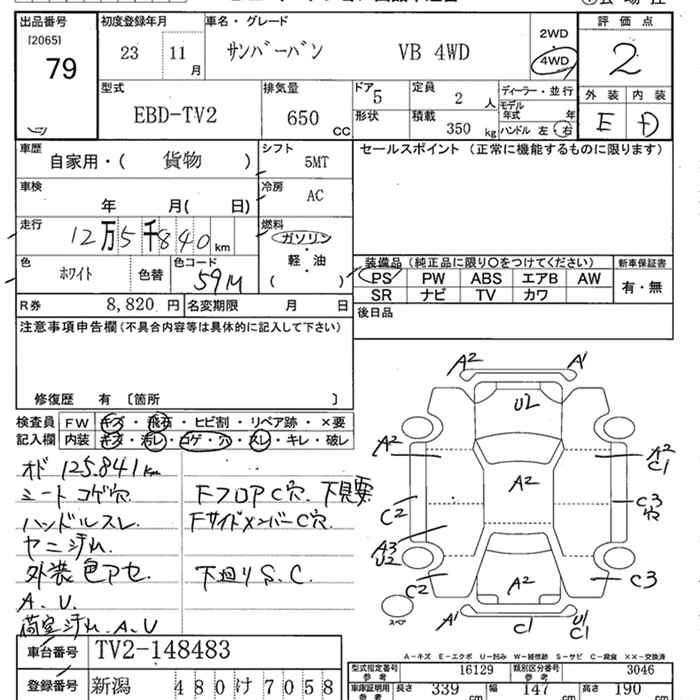 出品番号
[2065]
79
初度登録年月
23 11 月
車名・グレード
サンバーバン VB 4WD
2WD
4WD
評価点
2
外装 内装
E D
型式
EBD-TV2
排気量
650 CC
ドア 5
形状
定員 2 人
積載 350 kg
ディーラー・並行
モデル年式 年
ハンドル 左・右
車歴
自家用・( 貨物 )
シフト
5MT
セールスポイント (正常に機能するものに限ります)
車検
年 月( 日)
冷房
AC
走行
12万5千840 km
燃料
ガソリン
・
軽・油
( )
色
ホワイト
色替
色コード
59M
装備品 (純正品に限り○をつけてください)
PS PW ABS エアB AW
SR ナビ TV カワ
新車保証書
有・無
R券 8,820 円
名変期限 月 日
後日品
注意事項申告欄(不具合内容等は具体的に記入して下さい)
修復歴 有 [箇所 ]
検査員記入欄
FW キズ・飛石・ヒビ割・リペア跡・×要
内装 キズ・汚レ・コゲ・穴・スレ・キレ・破レ
オド 125.841km
シート コゲ穴
ハンドルスレ.
ヤニ汚れ.
外装 色アセ.
A.U.
荷室汚れ.A.U
Fフロア C穴. 下見要
Fサイドメンバー C穴.
下廻りS.C.
A2 A1
U2
A2
A2
C1
A2
C2
C3
A3
U2
C2
C3
A2
A1
C1
U1
C1
スペア
A-キズ E-エクボ U-凹み W-補修跡 S-サビ C-腐食 ××-交換済
車台番号 TV2-148483
登録番号 新潟 480 け 7058
型式指定番号 参考 16129
類別区分番号 参考 3046
車庫証明用 参考
長さ 339 cm
幅 147 cm
高さ 190 cm